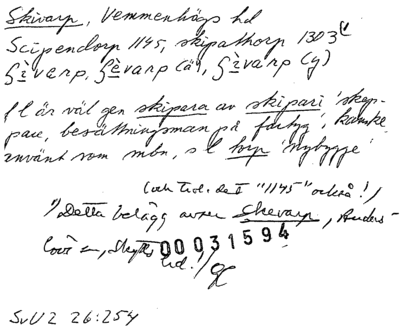 Skivarp, Vemmenhögs hd
Scipendorp 1145, skipathorp 1303 1)
ʃìvarp, ʃèvarp (ä), ʃìvarp (y)
fl är väl gen skipara av skipari 'skep-
pare, besättningsman på fartyg', kanske
använt som mbn, sl torp 'nybygge'
(och tid. det "1145" också!)
1) Detta belägg avser Skevarp, Anders-
löv sn, Skytts hd!)
00031594
SvU 2 26:254